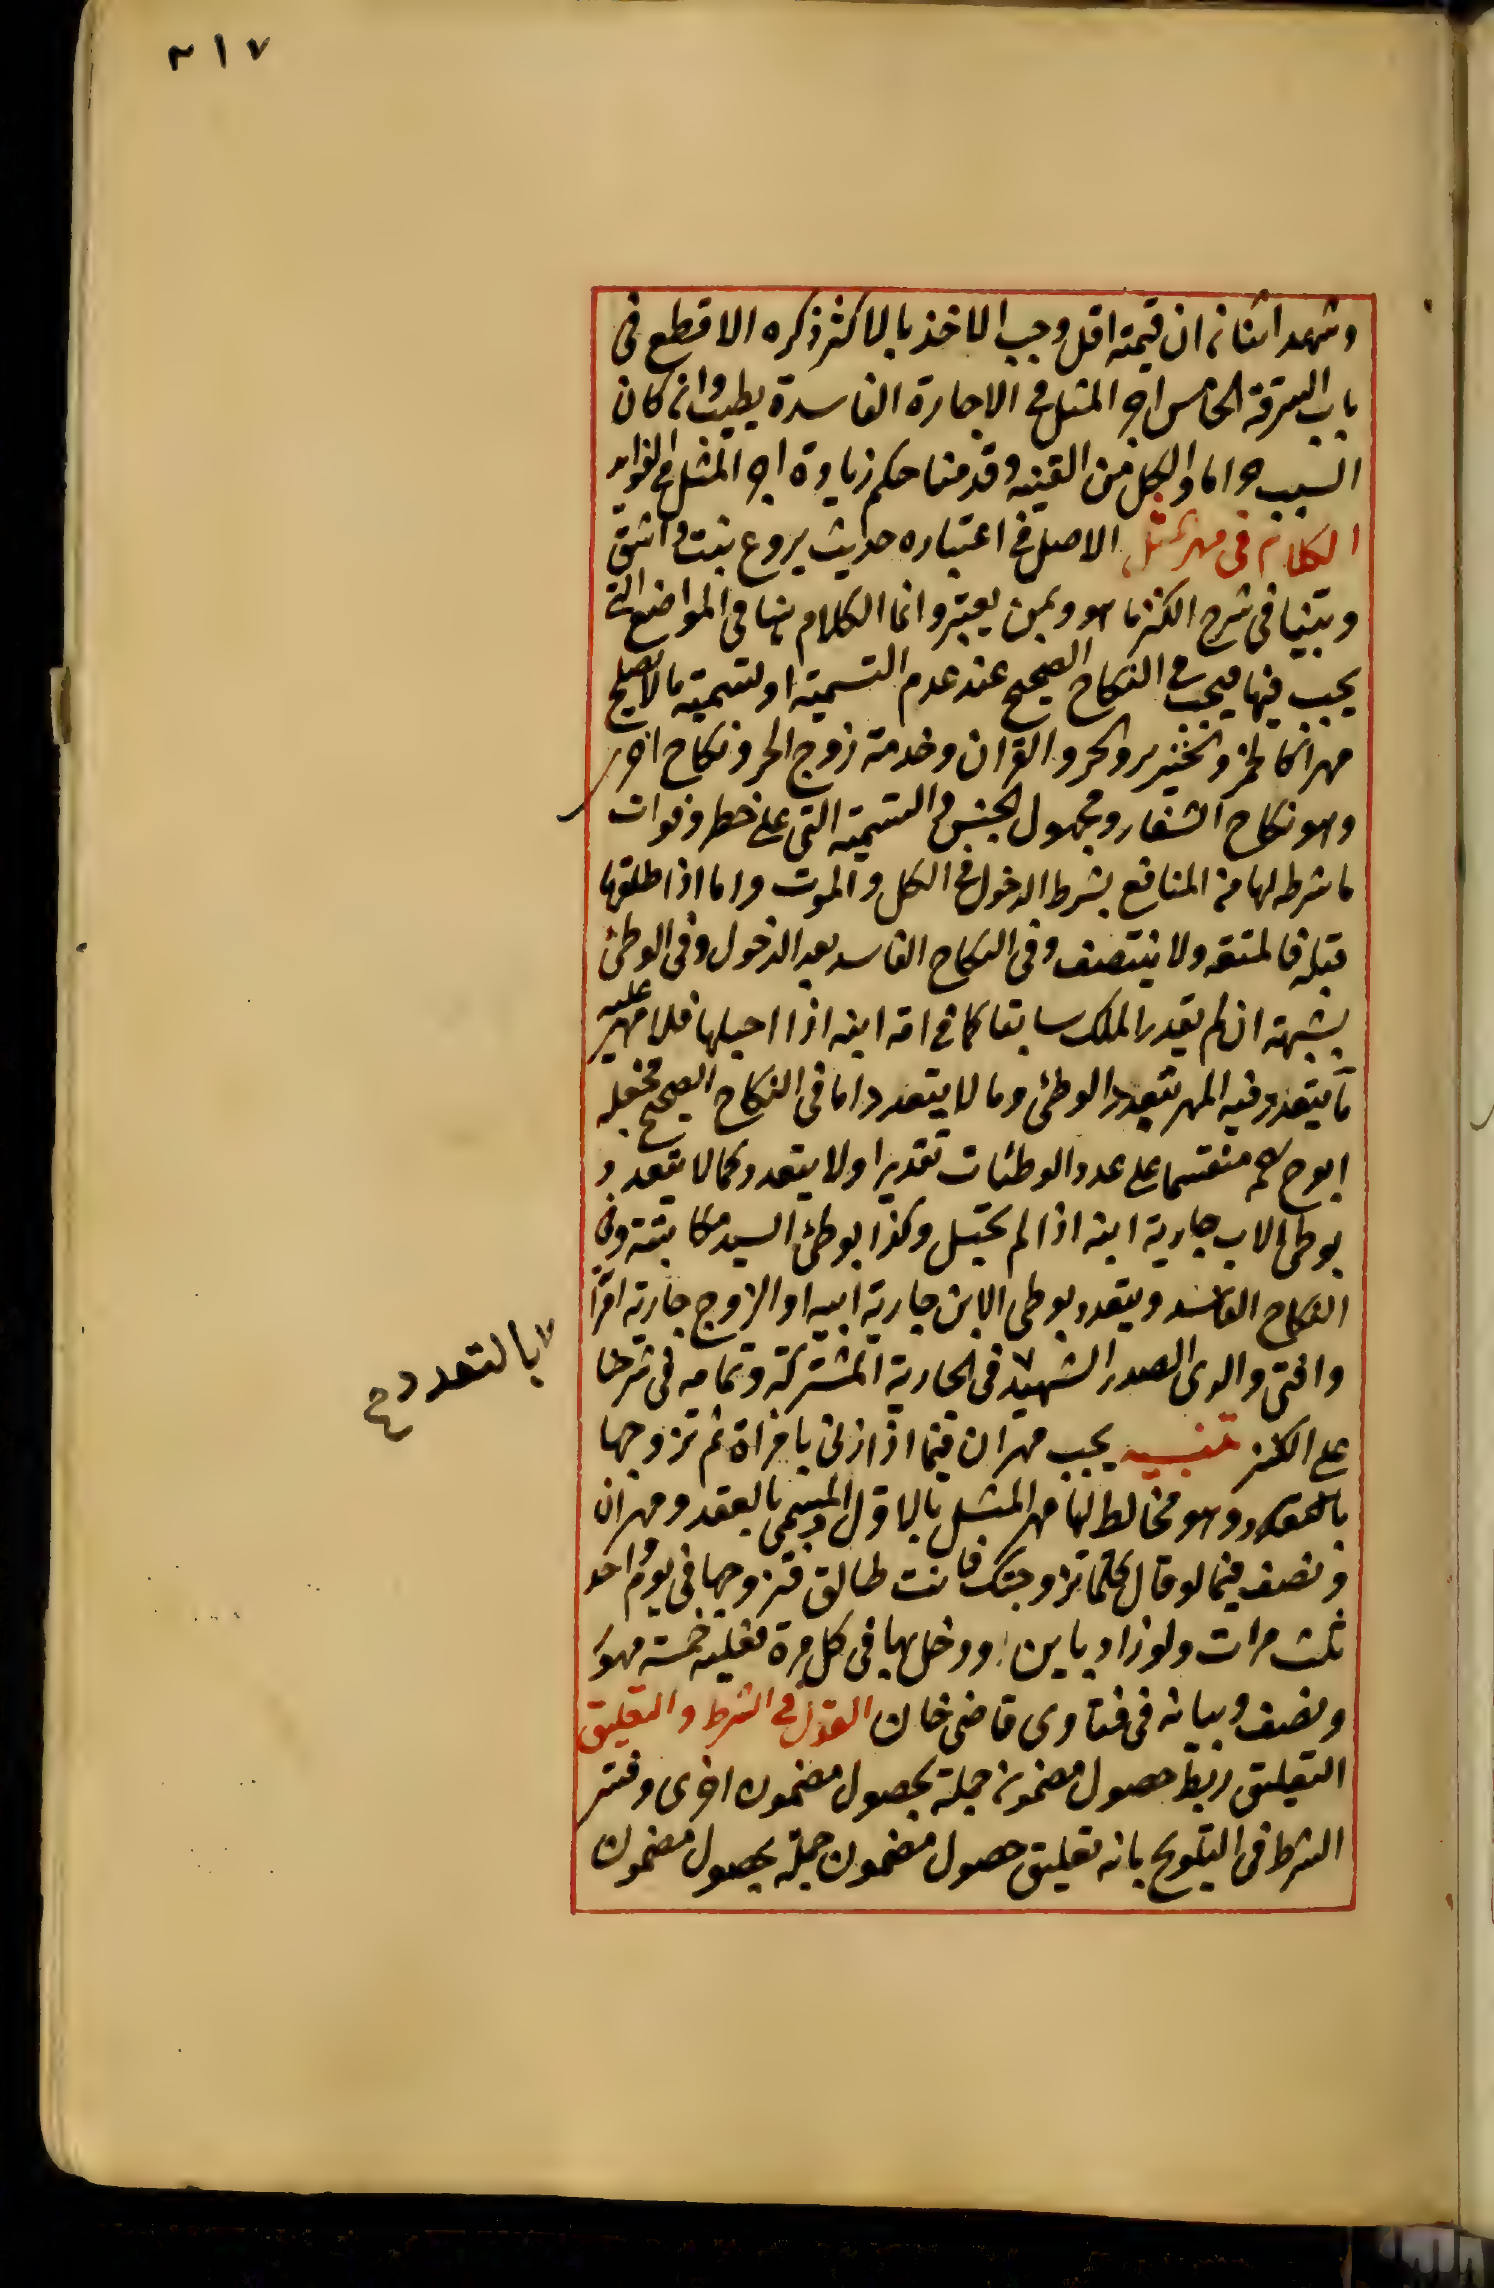 ٢١٧
وشهد اثنان ان قيمته اقل وجب الاخذ بالاكثر ذكره الاقطع فى
باب السرقة الخامس اجر المثل فى الاجارة الفاسدة يطيب وان كان
السبب حراما والكل من القنيه وقدمنا حكم زيادة اجر المثل فى الفوايد
الكلام فى مهر المثل الاصل فى اعتباره حديث بروع بنت واشق
وبينا فى شرح الكنز ما هو وبمن يعتبر وانما الكلام هنا فى المواضع التى
يجب فيها فيجب فى النكاح الصحيح عند عدم التسمية او تسمية ما لا يصلح
مهرا كالخمر والخنزير والحر والقران وخدمة زوج الحر ونكاح اخر
وهو نكاح الشغار ومجهول الجنس والتسمية التى على خطر وفوات
ما شرطه لها من المنافع بشرط الدخول فى الكل والموت واما اذا طلقها
قبله فالمتعة ولا يتنصف وفى النكاح الفاسد بعد الدخول وفى الوطئ
بشبهة ان لم يقدر الملك سابقا كما فى امة ابنه اذا احبلها فلا مهر عليه
ما يتعدد فيه المهر بتعدد الوطئ وما لا يتعدد اما فى النكاح الصحيح فجعله
ابوح رحمه منقسما على عدد الوطئات تقديرا ولا يتعدد كما لا يتعدد
بوطى الاب جارية ابنه اذا لم تحبل وكذا بوطئ السيد مكاتبته وفى
النكاح الفاسد ويتعدد بوطى الابن جارية ابيه او الزوج جارية امرا
وافتى والدى الصدر الشهيد فى الجارية المشتركة وتمامه فى شرحنا
بالتعدد ع
على الكنز تنبيه يجب مهران فيما اذا زنى بامراة ثم تزوجها
وهو مخالط لها مهر المثل بالاول والمسمى بالعقد ومهران
ونصف فيما لو قال كلما تزوجتك فانت طالق فتزوجها فى يوم واحد
ثلث مرات ولو زاد باين ودخل بها فى كل مرة فعليه خمسة مهور
ونصف وبيانه فى فتاوى قاضى خان القول فى الشرط والتعليق
التعليق ربط حصول مضمون جملة بحصول مضمون اخرى وفسر
الشرط فى التلويح بانه تعليق حصول مضمون جملة بحصول مضمون